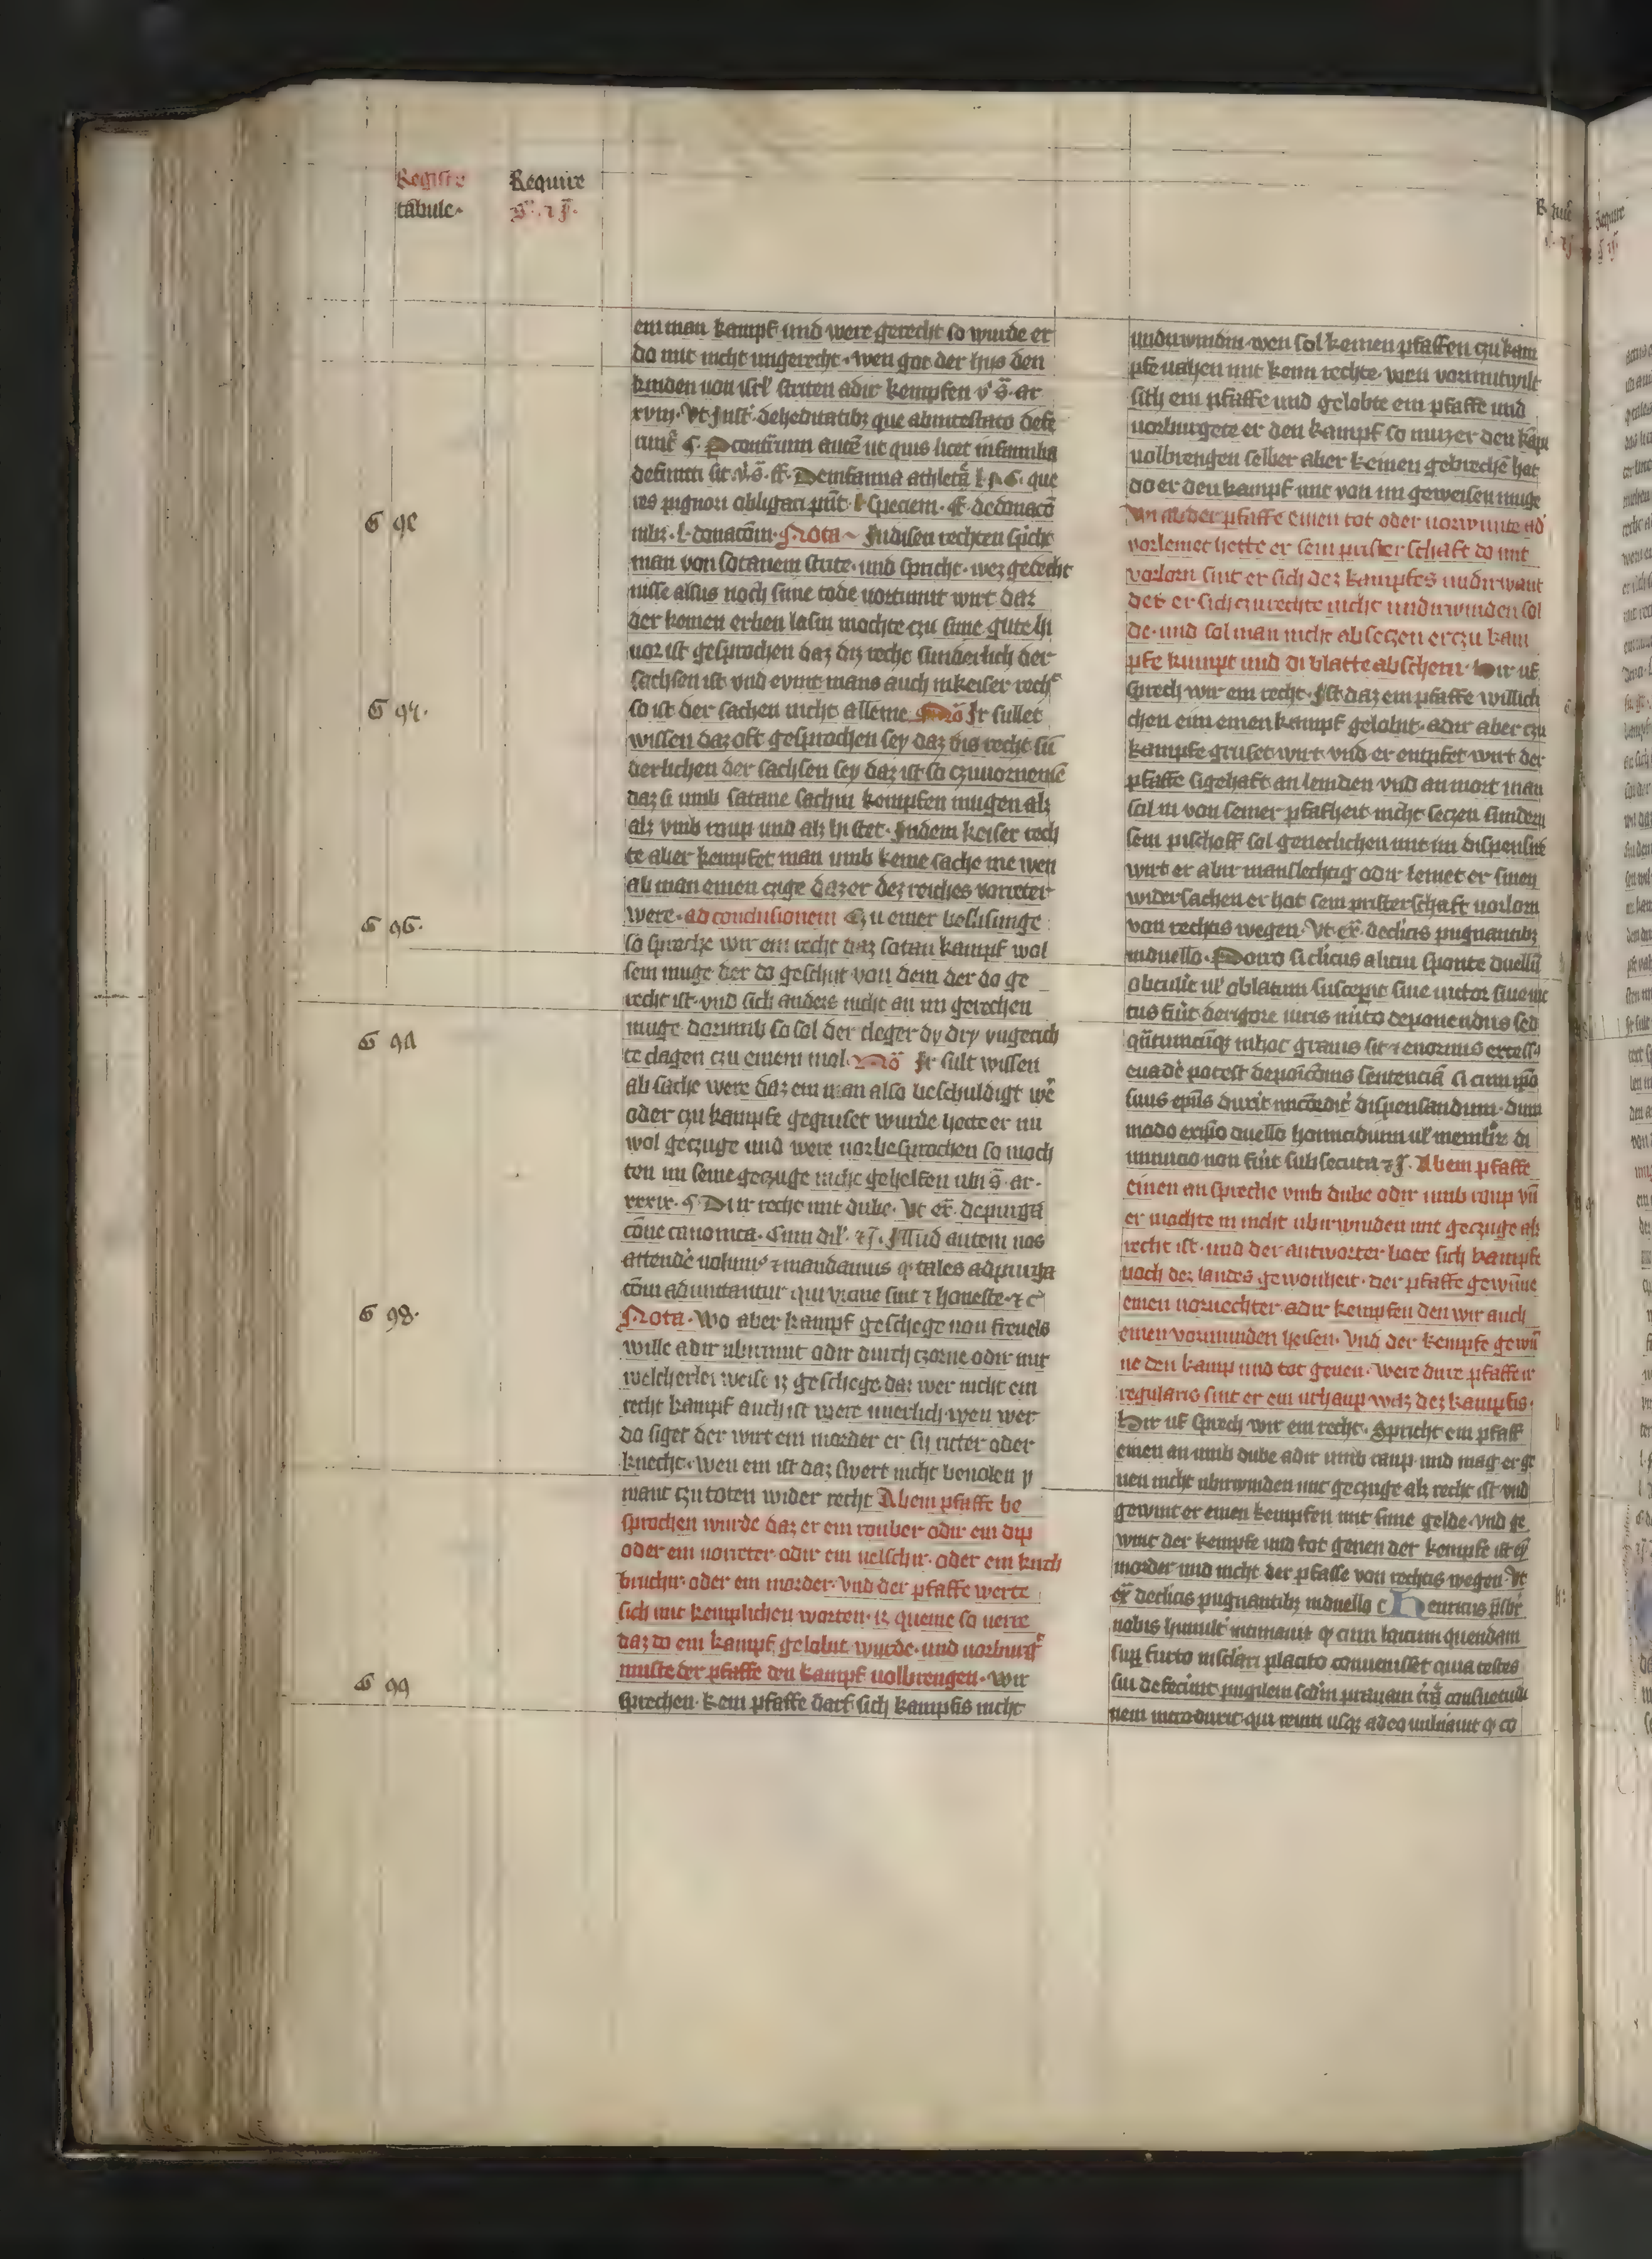 Registr Require
tabule·
ein man kampf und were gerecht so wurde er
do mit nicht ungerecht · wen got der hys den
kinden von isrl' striten adir kempfen v' s̄· ar
xviij· Vt Jnst' dehereditatibz que abintestato defe
runt̄ ¶· Pcontrarium autē ut quis licet infamilia
defuncti sit v̓· s̄· ff· Deinfamia athleta l· · ¶· que
res pignori obligari pn̄t· l· Speciem· ff· dedonacō
nibz· l· donacōm· Nota~ Jndisen rechten spicht
man von sotanem strite· und spricht· wez gerecht
nisse alsus noch sime tode vortumit wirt daz
der komen erben lasin mochte czu sime gute hi
vor ist gesprochen daz diz recht sunderlich der
sachsen ist vnd evint mans auch inkeiser rech᷑
so ist der sachen nicht alleine Nō Jr sullet
wissen daz oft gesprochen sey daz dis recht sū
derlichen der sachsen sey daz ist so czuuornemē
daz si umb satane sachin kempfen mugen alz
alz vmb roup und alz hi stet· Jndem keiser rech
te aber kempfet man umb keine sache me wen
ab man einen czige daz er dez reiches vorreter
were· ad conclusionem Czu einer beslisunge
so spreche wir ein recht daz sotan kampf wol
sein muge der do geschit von dem der do ge
recht ist· vnd sich anders nicht an im gerechen
muge dorumb so sol der cleger dy dry vngerich
te clagen czu einem mol· Nō Jr sult wissen
ab sache were daz ein man also beschuldigt wē
oder czu kampfe gegruset wurde hette er nu
wol geczuge und were vorbesprochen so moch
ten im seine geczuge nicht gehelfen ubi s̄· ar·
xxxix· ¶· Dur recht mit dube· Vt ex̄· depurga
cōne canonica· Cum dil'· ⁊ j̄· Jllud autem uos
attende᷑ volum⁹ ⁊ mandamus q̵ tales adpurga
cōm admittantur qui vicine sint ⁊ honeste· ⁊ c̄
Nota· Wo aber kampf geschege von freuels
wille adir ubirmut odir durch czorne odir mit
welcherlei weise iz geschege daz wer nicht ein
recht kampf auch ist were unerlich wen wer
do siget der wirt ein morder er sij ritter oder
knecht· wen em ist daz swert nicht beuolen y
mant czu toten wider recht Ab ein pfaffe be
sprochen wurde daz er ein rouber odir ein dip
oder ein vorreter· odir ein velschir· oder ein kirch
bruchir· oder ein morder· vnd der pfaffe werte
sich mit kemplichen worten· iz queme so verre
daz do ein kampf gelobit wurde· und vorburg᷑
muste der pfaffe den kampf volbrengen· Wir
sprechen· kein pfaffe darf sich kampfis nicht
G 98·
G 99
undirwindin· wen sol keinen pfaffen czu kam
pfe vahen mit kein rechte· wen vormutwilt
sich ein pfaffe und gelobte ein pfaffe und
vorburgete er den kampf so muz er den kāp
volbrengen selber aber keinen gebrechē hat
do er den kampf mit von im geweisen muge
der pfaffe einen tot oder vorwunte ad᷑
vorlemet hette er sein prister schaft do mit
vorlorn sint er sich dez kampfes undirwant
det er sich czu rechte nicht undirwinden sol
de· und sol man nicht ab seczen er czu kam
pfe kumpt und di blatte ab schern· hir uf
sprech wir ein recht· Jst daz ein pfaffe willich
chen eim einen kampf gelobit· adir aber czu
kampfe gruset wirt· vnd er entpfet wirt der
pfaffe sigehaft an lemden vnd an mort man
sal in von seiner pfafheit nicht seczen sundern
sein pischoff sol genedichen mit im dispensirē
wirt er abir manslechtig odir lemet er sinen
widersachen er hot sein pristerschaft vorlorn
von rechtis wegen· Vt ex̄· declicis pugnantibz
induello· Porro si clicus alicui sponte duellū
obtulit ul' oblatum suscepit siue victor siue vic
tus fūit derigore iuris mito deponendus sed
qūtumcūqz inhoc grauis sit ⁊ enormis excess⁹
euade᷑ potest deposicōnis sentenciā si cum ip̄o
suus ep̄us duxit dispensandum· dum
modo exip̄o duello homicidium ul' membr᷑ di
minucio non fūit subsecuta ⁊ j̄· Ab ein pfaffe
einen an spreche vmb dube odir umb roup vn̄
er mochte in nicht ubirwinden mit geczuge als
recht ist· und der antworter bote sich kampfe
noch dez landes gewonheit· der pfaffe gewūne
einen vornechter adir kempfen den wir auch
einen vormunden heisen· Vnd der kempfe gewū
ne den kamp und tot genen· Were dure pfaffe ir
regularis sint er ein urhaup waz dez kampfis·
Hir uf sprech wir ein recht· Spricht ein pfaff
einen an umb dube adir umb raup und mag er ge
nen nicht ubirwinden mit geczuge alz recht ist· vnd
gewint er einen kempfen mit sime gelde· vnd ge
wint der kempfe und tot genen der kempfe ist ey
morder und nicht der pfaffe von rechtis wegen· Vt
ex̄ declicis pugnantibz induello c̄ Henricus p̄sbr᷑
nobis humilit᷑ intimauit q̵ cum laicum quendam
sup̱ furto insclari placito conuenisset quia testes
sui defecerunt pugilem scd̄m prauam tr̄e consuetudi
nem introduxit· qui reum usqz adeo vulnauit q̵ co